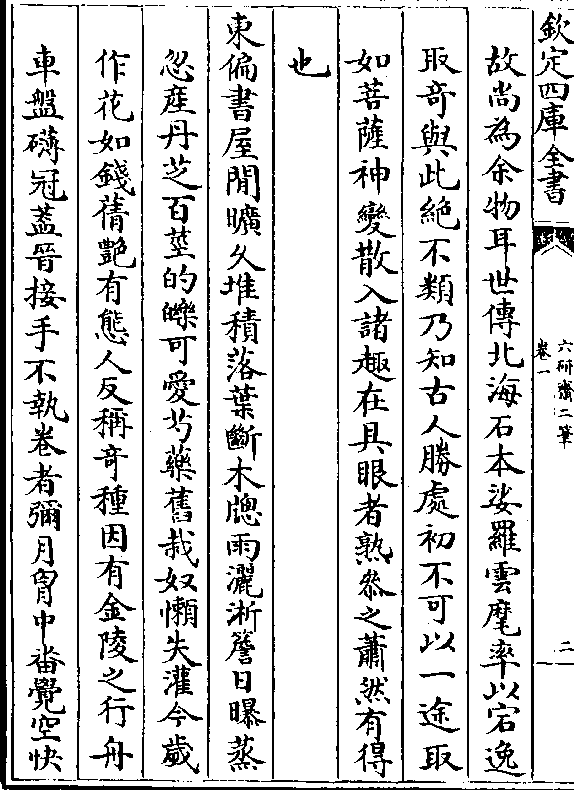 欽定四庫全書
六研齋二筆
卷一
二
故尚為余物耳世傳北海石本娑羅雲麾率以宕逸
取竒與此絶不類乃知古人勝處初不可以一途取
如菩薩神變散入諸趣在具眼者熟叅之蕭然有得
也
東偏書屋閒曠久堆積落葉斷木牕雨灑淅簷日曝蒸
忽産丹芝百莖的皪可愛芍藥舊栽奴懶失灌今歲
作花如錢蒨艷有態人反稱竒種因有金陵之行舟
車盤礴冠蓋晉接手不執卷者彌月胷中畨覺空快